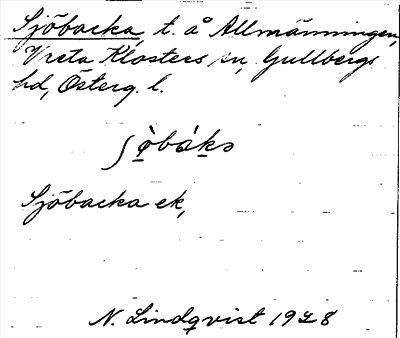 Sjöbacka t. å Allmänningen,
Vreta Klosters sn, Gullbergs
hd, Österg. l.
Sjöbacka ek,
N. Lindqvist 1928